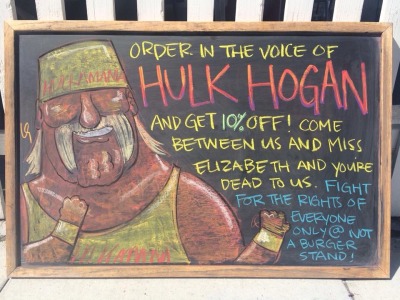 ORDER IN THE VOICE OF
HULK HOGAN
AND GET 10% OFF! COME
BETWEEN US AND MISS
ELIZABETH AND YOURE
DEAD TO US. FIGHT
FOR THE RIGHTS OF
EVERYONE
ONLY @ NOT
A BURGER
STAND!